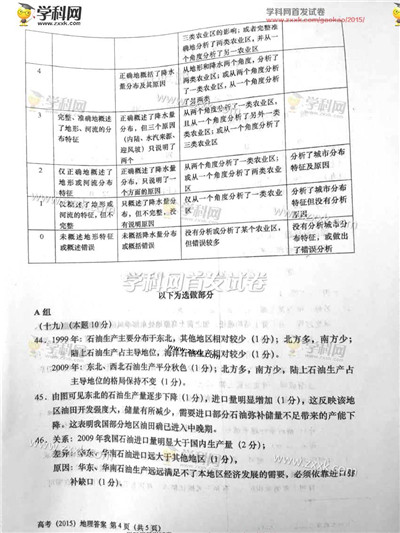 学科网首发试卷
www.zxxk.com/gaokao/2015/
三类农业区的影响；或者完整准
确地分析了两类农业区，并从一
个角度分析了另一农业区
4
正确概括了降水
量分布及其原因
从地形和降水两个角度，分析了
两类农业区；或从两个角度分析
了一类农业区，从一个角度分析
了另两类
3
完整、准确概述
了地形、河流的分
布特征
正确概述了降水量
分布，但三个原因
（内陆、水汽来源、
迎风坡）只说明了
两个
从两个角度分析了一类农业区，
且从一个角度分析了另外一类
农业区；或从一个角度分析了
三类农业区
2
仅正确地概述了
地形或河流分布
特征
正确概述了降水量
分布，只说明了一
个方面的原因
从两个角度分析了一类农业区，
或从一个角度分析了两类农业
区
分析了城市分布
特征及原因
1
仅概述了地形或
河流的特征，但不
完整
只概述了降水量分
布，但不完整，没
有说明原因
仅从一个角度分析了一类农业
区
分析了城市分布
特征但没有分析
原因
0
未概述地形特征
或概述错误
未概括降水量分布
或概括错误
没有分析或分析了某个农业区，
但错误较多
没有分析城市分
布特征，或做出
了错误分析
学科网首发试卷
以下为选做部分
A 组
（十九）（本题10分）
44. 1999年：石油生产主要分布于东北，其他地区相对较少（1分）；北方多，南方少；
陆上石油生产占主导地位，海洋石油生产相对较少（1分）。
2009年：东北、西北石油生产平分秋色（1分）；北方多，南方少，陆上石油生产占
主导地位的格局保持不变（1分）。
45. 由图可见东北的石油生产量逐步下降（1分），进口量明显增加（1分），这反映该地
区油田开发强度大，储量有所减少，需要进口部分石油弥补储量不足带来的产能下
降。这表明我国部分地区油田确已进入中晚期。
46. 关系：2009年我国石油进口量明显大于国内生产量（2分）；
差异：华东、华南石油进口量远大于其他地区（1分）。
原因：华东、华南石油生产远远满足不了本地区经济发展的需要，必须依靠进口弥
补缺口（1分）。
高考（2015）地理答案 第4页（共5页）